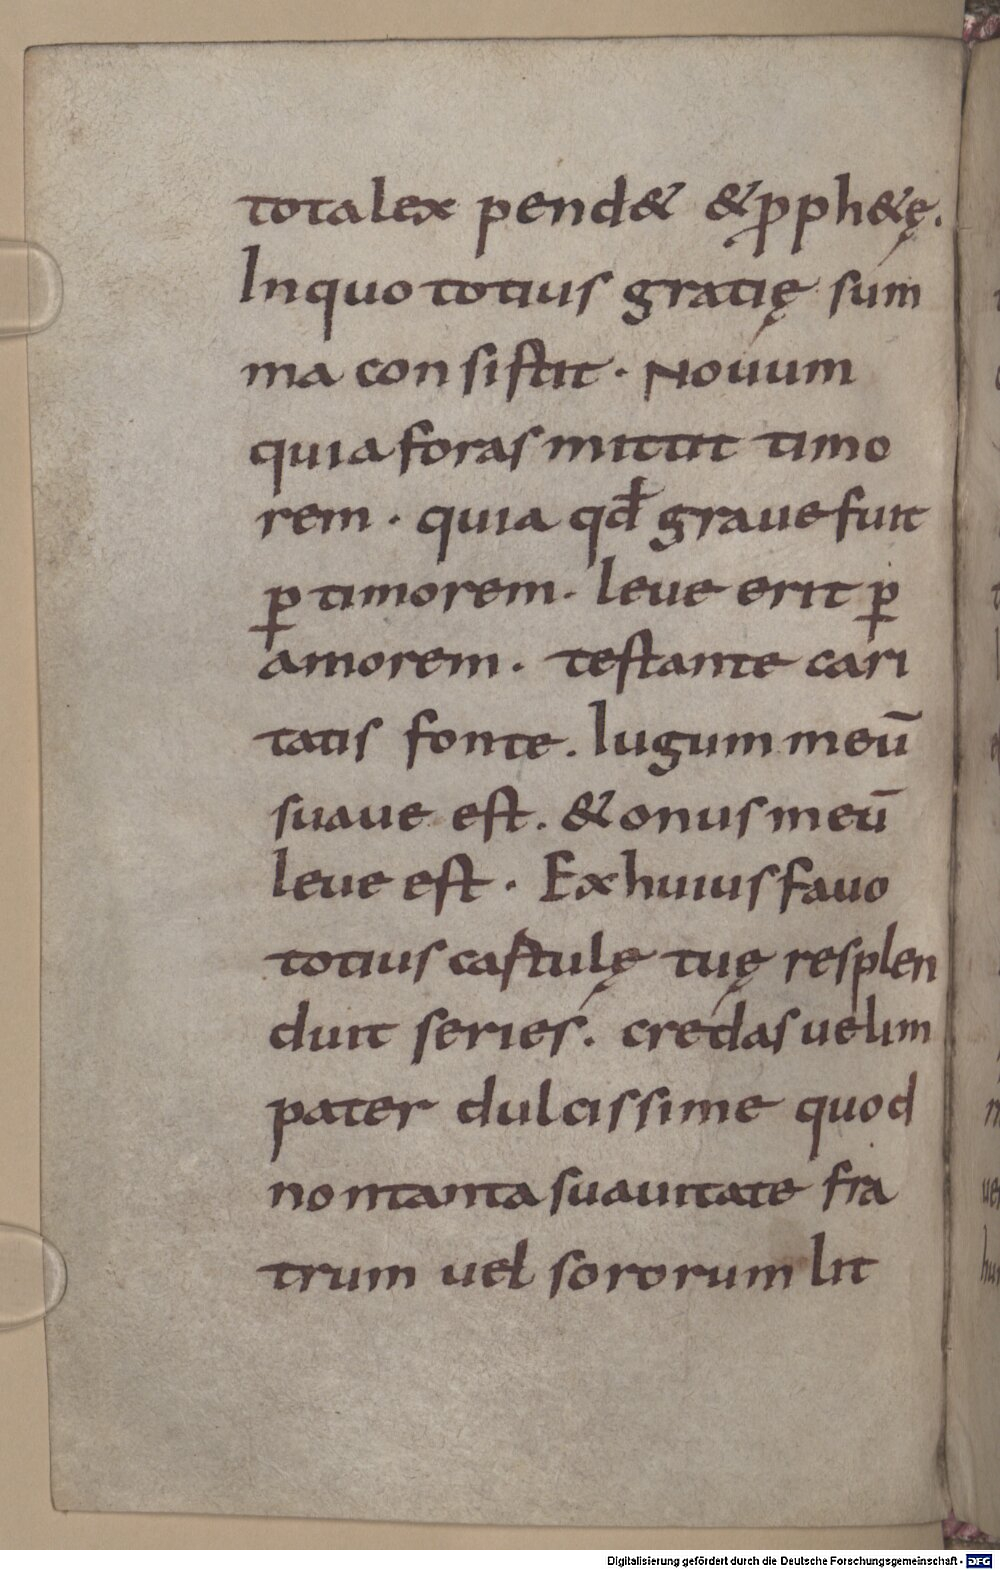 tota lex pend& & ꝓph&ę.
In quo totius gratię sum
ma consistit · Nouum
quia foras mittit timo
rem · quia qđ graue fuit
ꝑ timorem · leue erit ꝑ
amorem · testante cari
tatis fonte . Iugum meū
suaue est . & onus meū
leue est · Ex huius fauo
totius castulę tuę resplen
duit series . credas uelim
pater dulcissime quod
non tanta suauitate fra
trum uel sororum lit
Digitalisierung gefördert durch die Deutsche Forschungsgemeinschaft - DFG